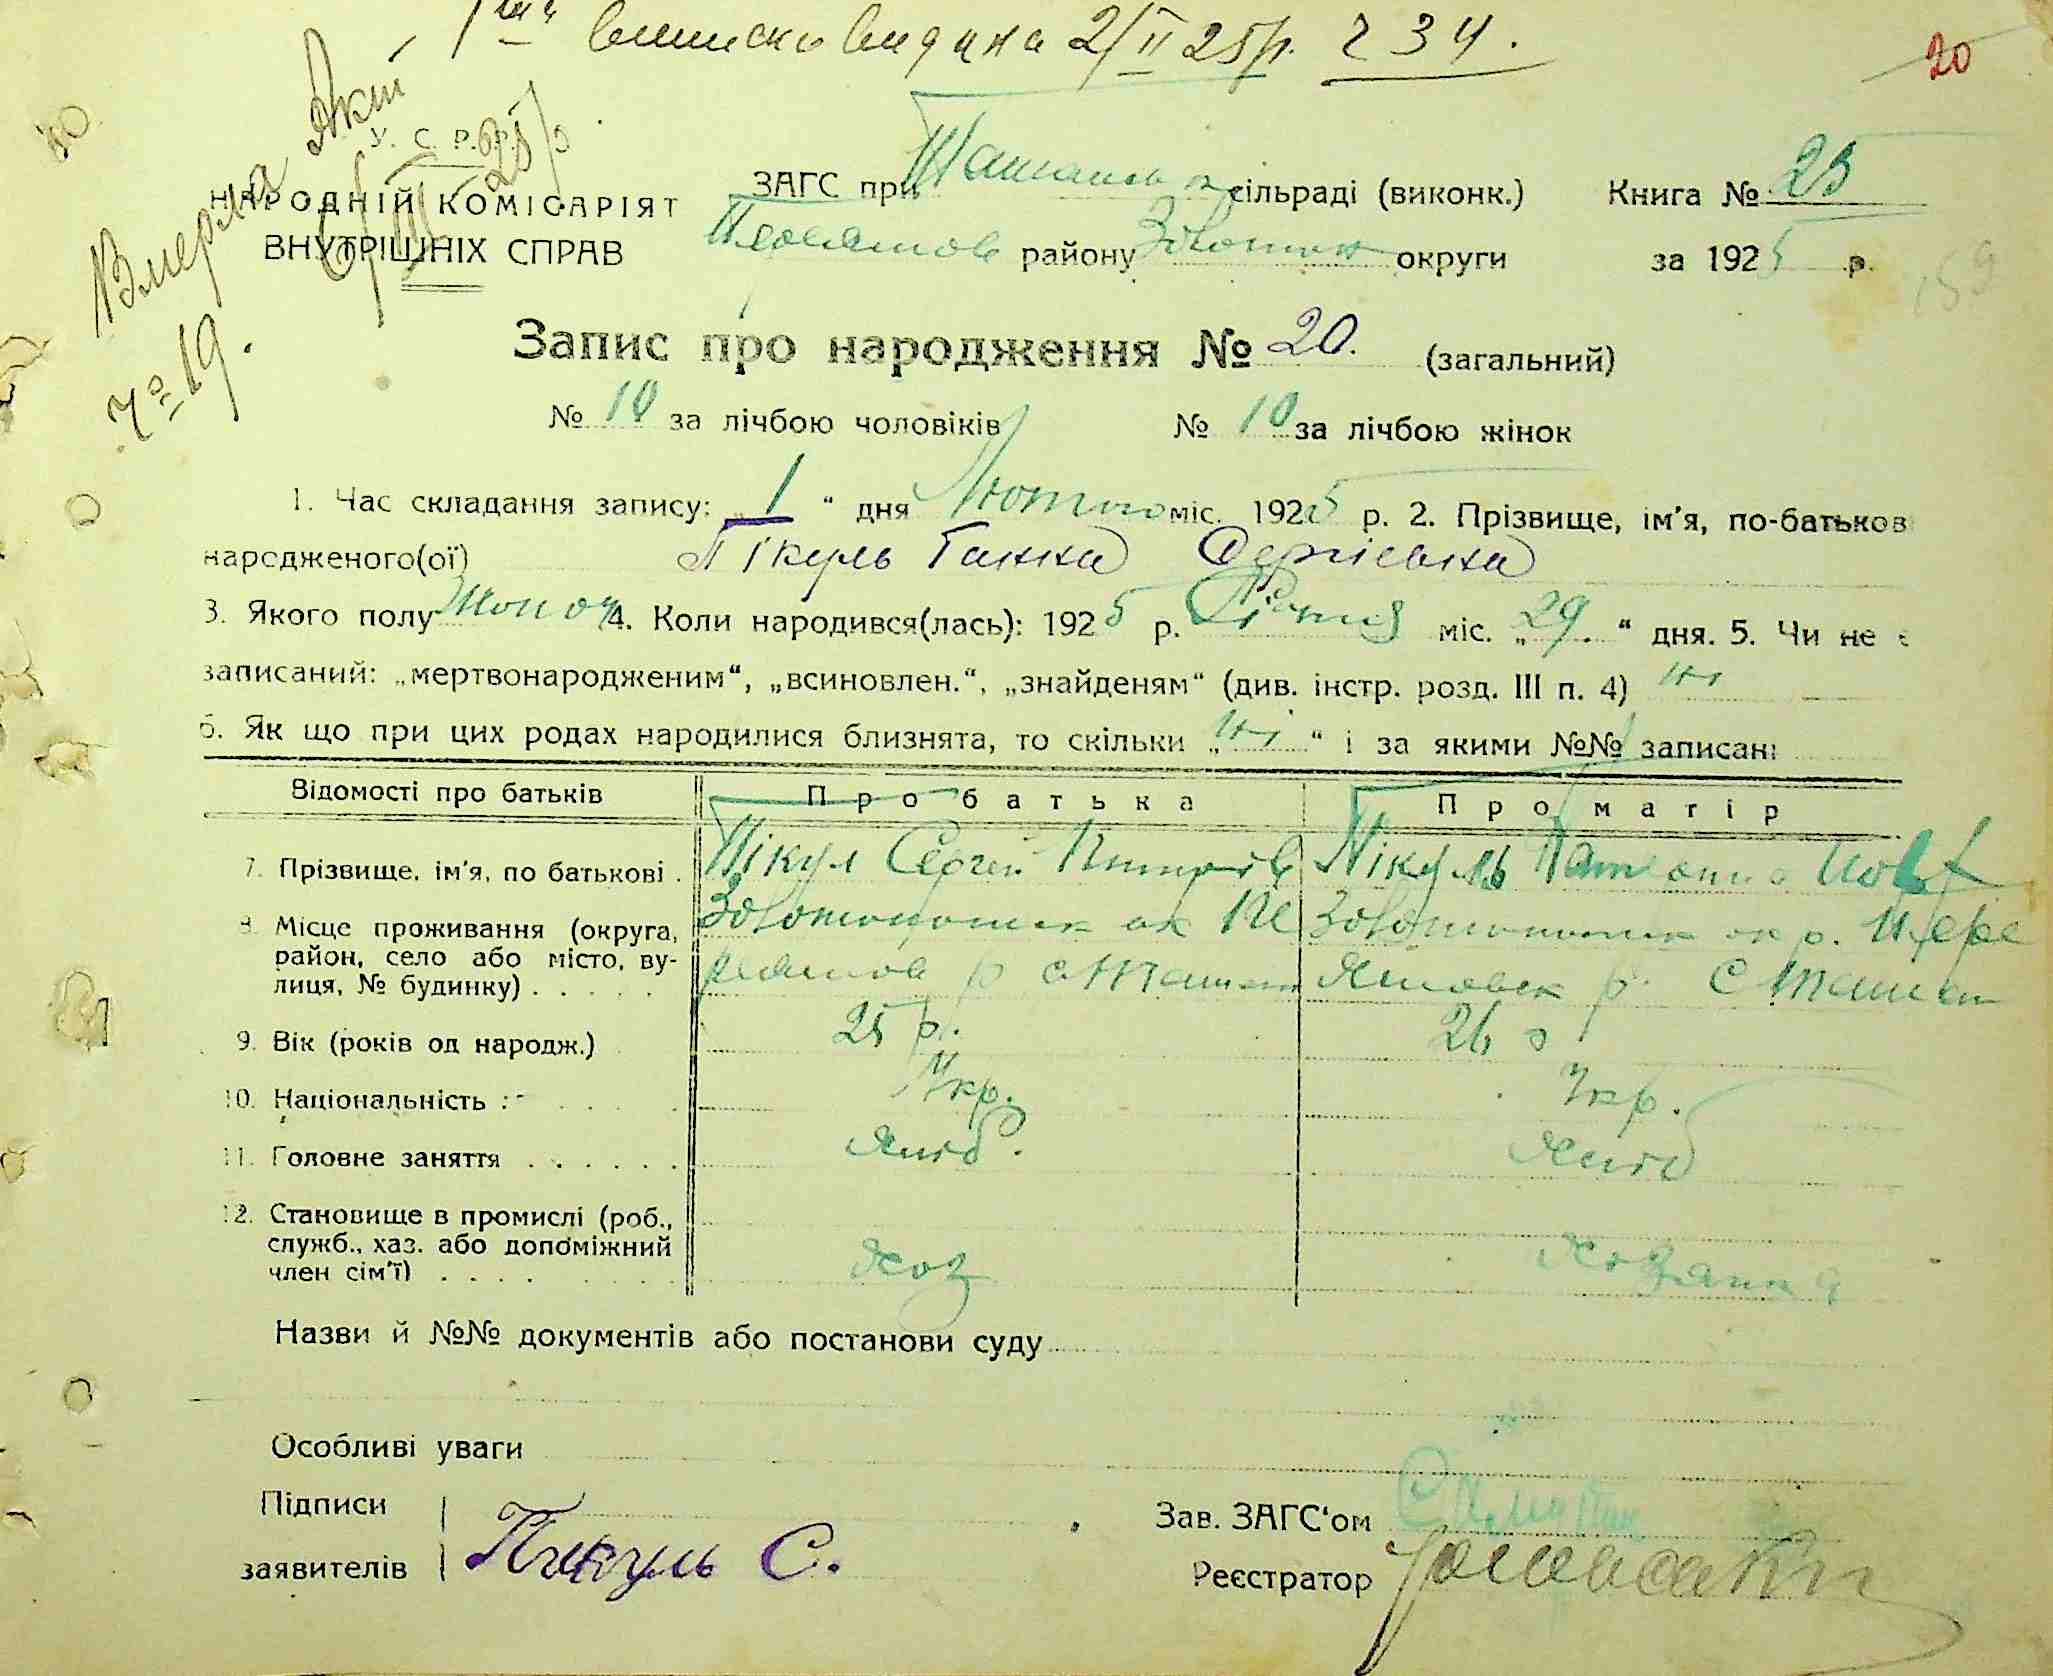 виписка видана 2/II 25 р. 234.
20
Вмерла Акт
6/III 25 р
№ 19.
У. С. Р. Р.
НАРОДНІЙ КОМІСАРІЯТ
ВНУТРІШНІХ СПРАВ
ЗАГС при Ташанськ сільраді (виконк.) Книга № 25
району Золотон округи за 1925 р.
159
Запис про народження № 20. (загальний)
№ 10 за лічбою чоловіків № 10 за лічбою жінок
1. Час складання запису: „1“ дня Лютого міс. 1925 р. 2. Прізвище, ім'я, по-батькові
народженого(ої) Пікуль Ганна Сергієвна
3. Якого полу Жіноч 4. Коли народився(лась): 1925 р. Січня міс. „29.“ дня. 5. Чи не є
записаний: „мертвонародженим“, „всиновлен.“, „знайденям“ (див. інстр. розд. III п. 4) ні
6. Як що при цих родах народилися близнята, то скільки „ні“ і за якими №№ записані
Відомості про батьків Про батька Про матір
7. Прізвище, ім'я, по батькові . Пікул Сергій Пікуль
8. Місце проживання (округа, Золотоношськ ок Пе Золотоношськ окр. Пере
район, село або місто, ву- реяслов р с Ташань яславськ р. с Ташань
лиця, № будинку) . . . . .
9. Вік (років од народж.) 25 р. 26 р
10. Національність : Укр. Укр.
11. Головне заняття . . . . . . хліб. хліб
12. Становище в промислі (роб.,
служб., хаз. або допоміжний
член сім'ї) . . . . хоз хозяйка
Назви й №№ документів або постанови суду
Особливі уваги
Підписи
заявителів Пикуль С.
Зав. ЗАГС'ом
Реєстратор